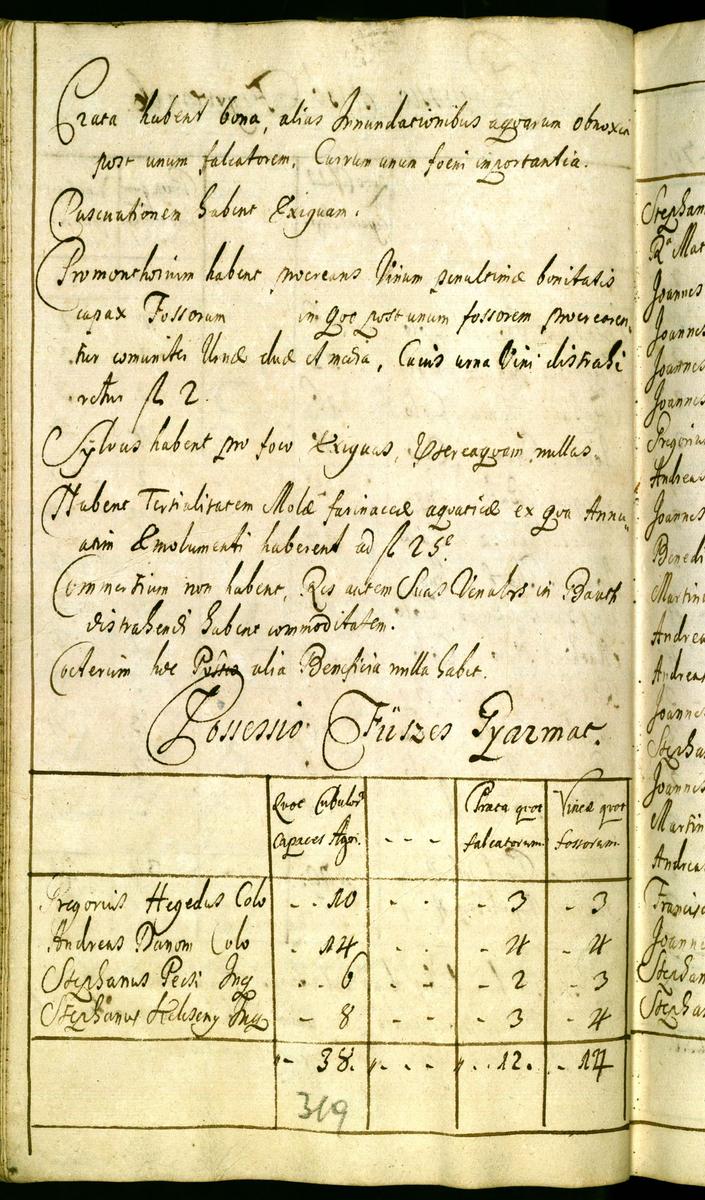 Prata habent bona, alias Inundationibus aquarum obnoxia
post unum falcatorem, Currum unum foeni importantia.
Pascuationem habent Exiguam.
Promonthorium habent procreans Vinum penultimæ bonitatis
capax Fossorum in quo post unum fossorem procrearen„
tur comuniter Urnæ duæ et media, Cuius urna Vini distrahi
retur fl 2.
Sylvas habent pro foco Exiguas, nullas.
Habent Tertialitatem Molæ farinaceæ aquaticæ ex qua Annu„
atim Emolumenti haberent ad fl 25
Commertium non habent, Res autem Suas Venales in
distrahendi habent commoditatem.
Cæterum hæc alia Beneficia nulla habet.
Possessio Füszes Gyarmat.
Quot Cubulor - - - Prata quot Vineæ quot
Capaces Agri. falcatorum fossorum
Gregorius Hegedus Colo - - 10 - - - 3 - 3
Andreas Danom Colo - 14 - - - 4 - 4
Stephanus Pecsi Inq - - 6 - - - 2 - 3
Stephanus Inq - 8 - - - 3 - 4
„- 38. „- - - „- - 12. - 14
319
Stephan
Joannes
Joannes
Joannes
Joannes
Gregorius
Andreas
Joannes
Benedi
Martin
Andrea
Andreas
Joannes
Stepha
Joannes
Martin
Andrea
Francisc
Joanne
Stephan
Stepha